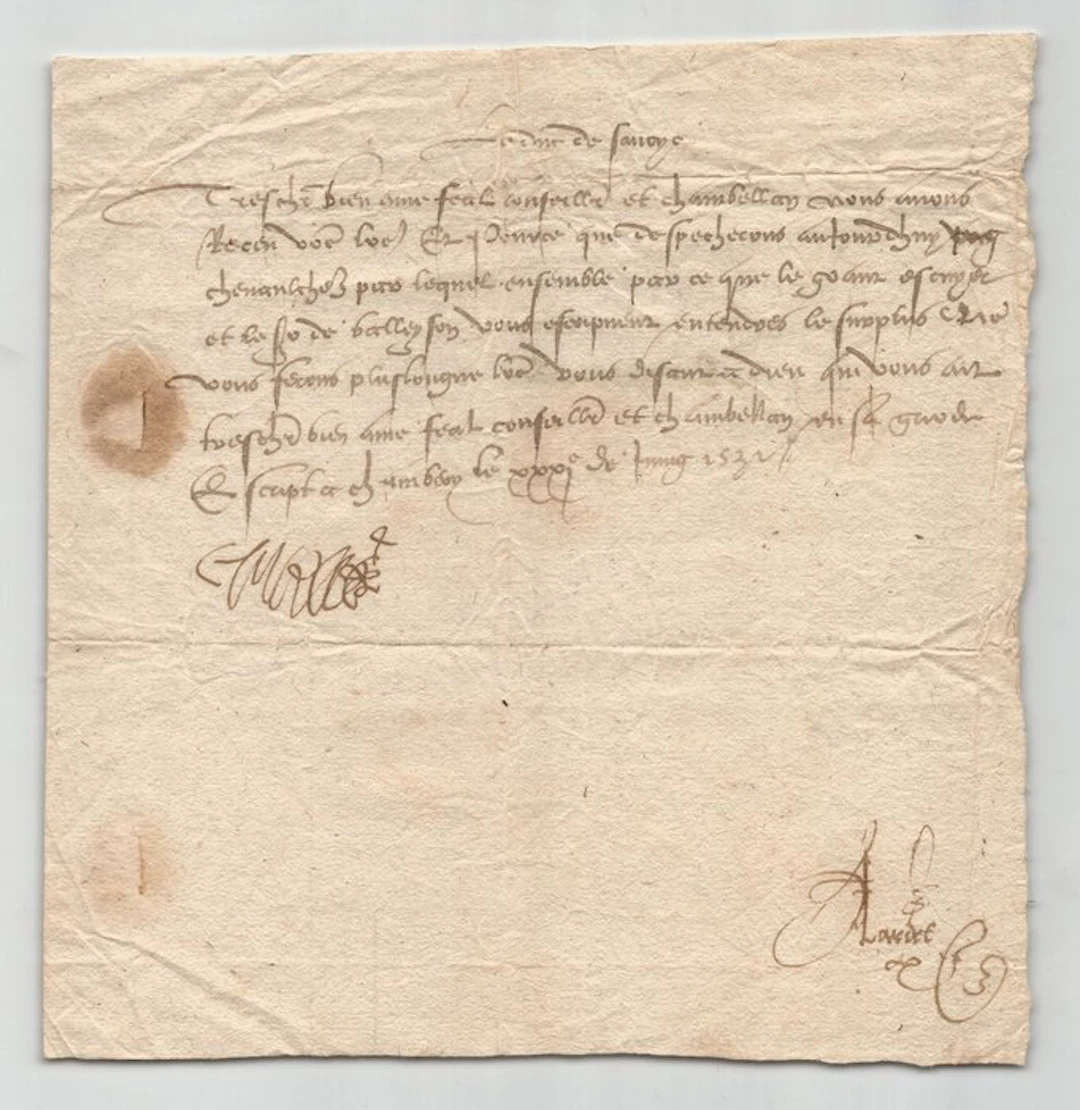 Le duc de savoye
Treschr bien ame feal conseillr et chambellan vous avons
Receu vre lre Et pource que despecherons aujourdhuy
chevaulcheur par lequel ensemble par ce que le grant escuyer
et le Sr de balleyson vous escripvent entendres le surplus
vous ferons pluslongue lre vous disant a dieu qui vous ait
treschr bien ame feal conseillr et chambellan en sa garde
Escript a chambery le xxxje de 1531